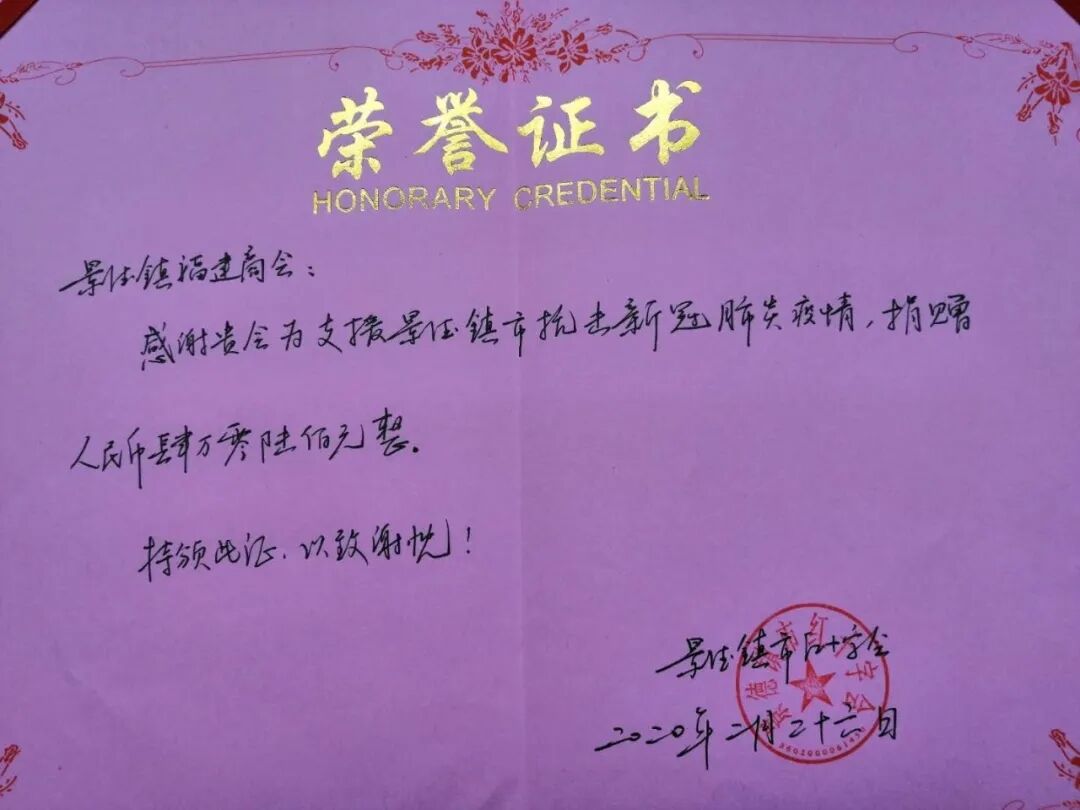 荣誉证书
HONORARY CREDENTIAL
景德镇福建商会：
感谢贵会为支援景德镇市抗击新冠肺炎疫情，捐赠
人民币肆万零陆佰元整。
特颁此证，以致谢忱！
景德镇市红十字会
二〇二〇年二月二十六日
景德镇市红十字会